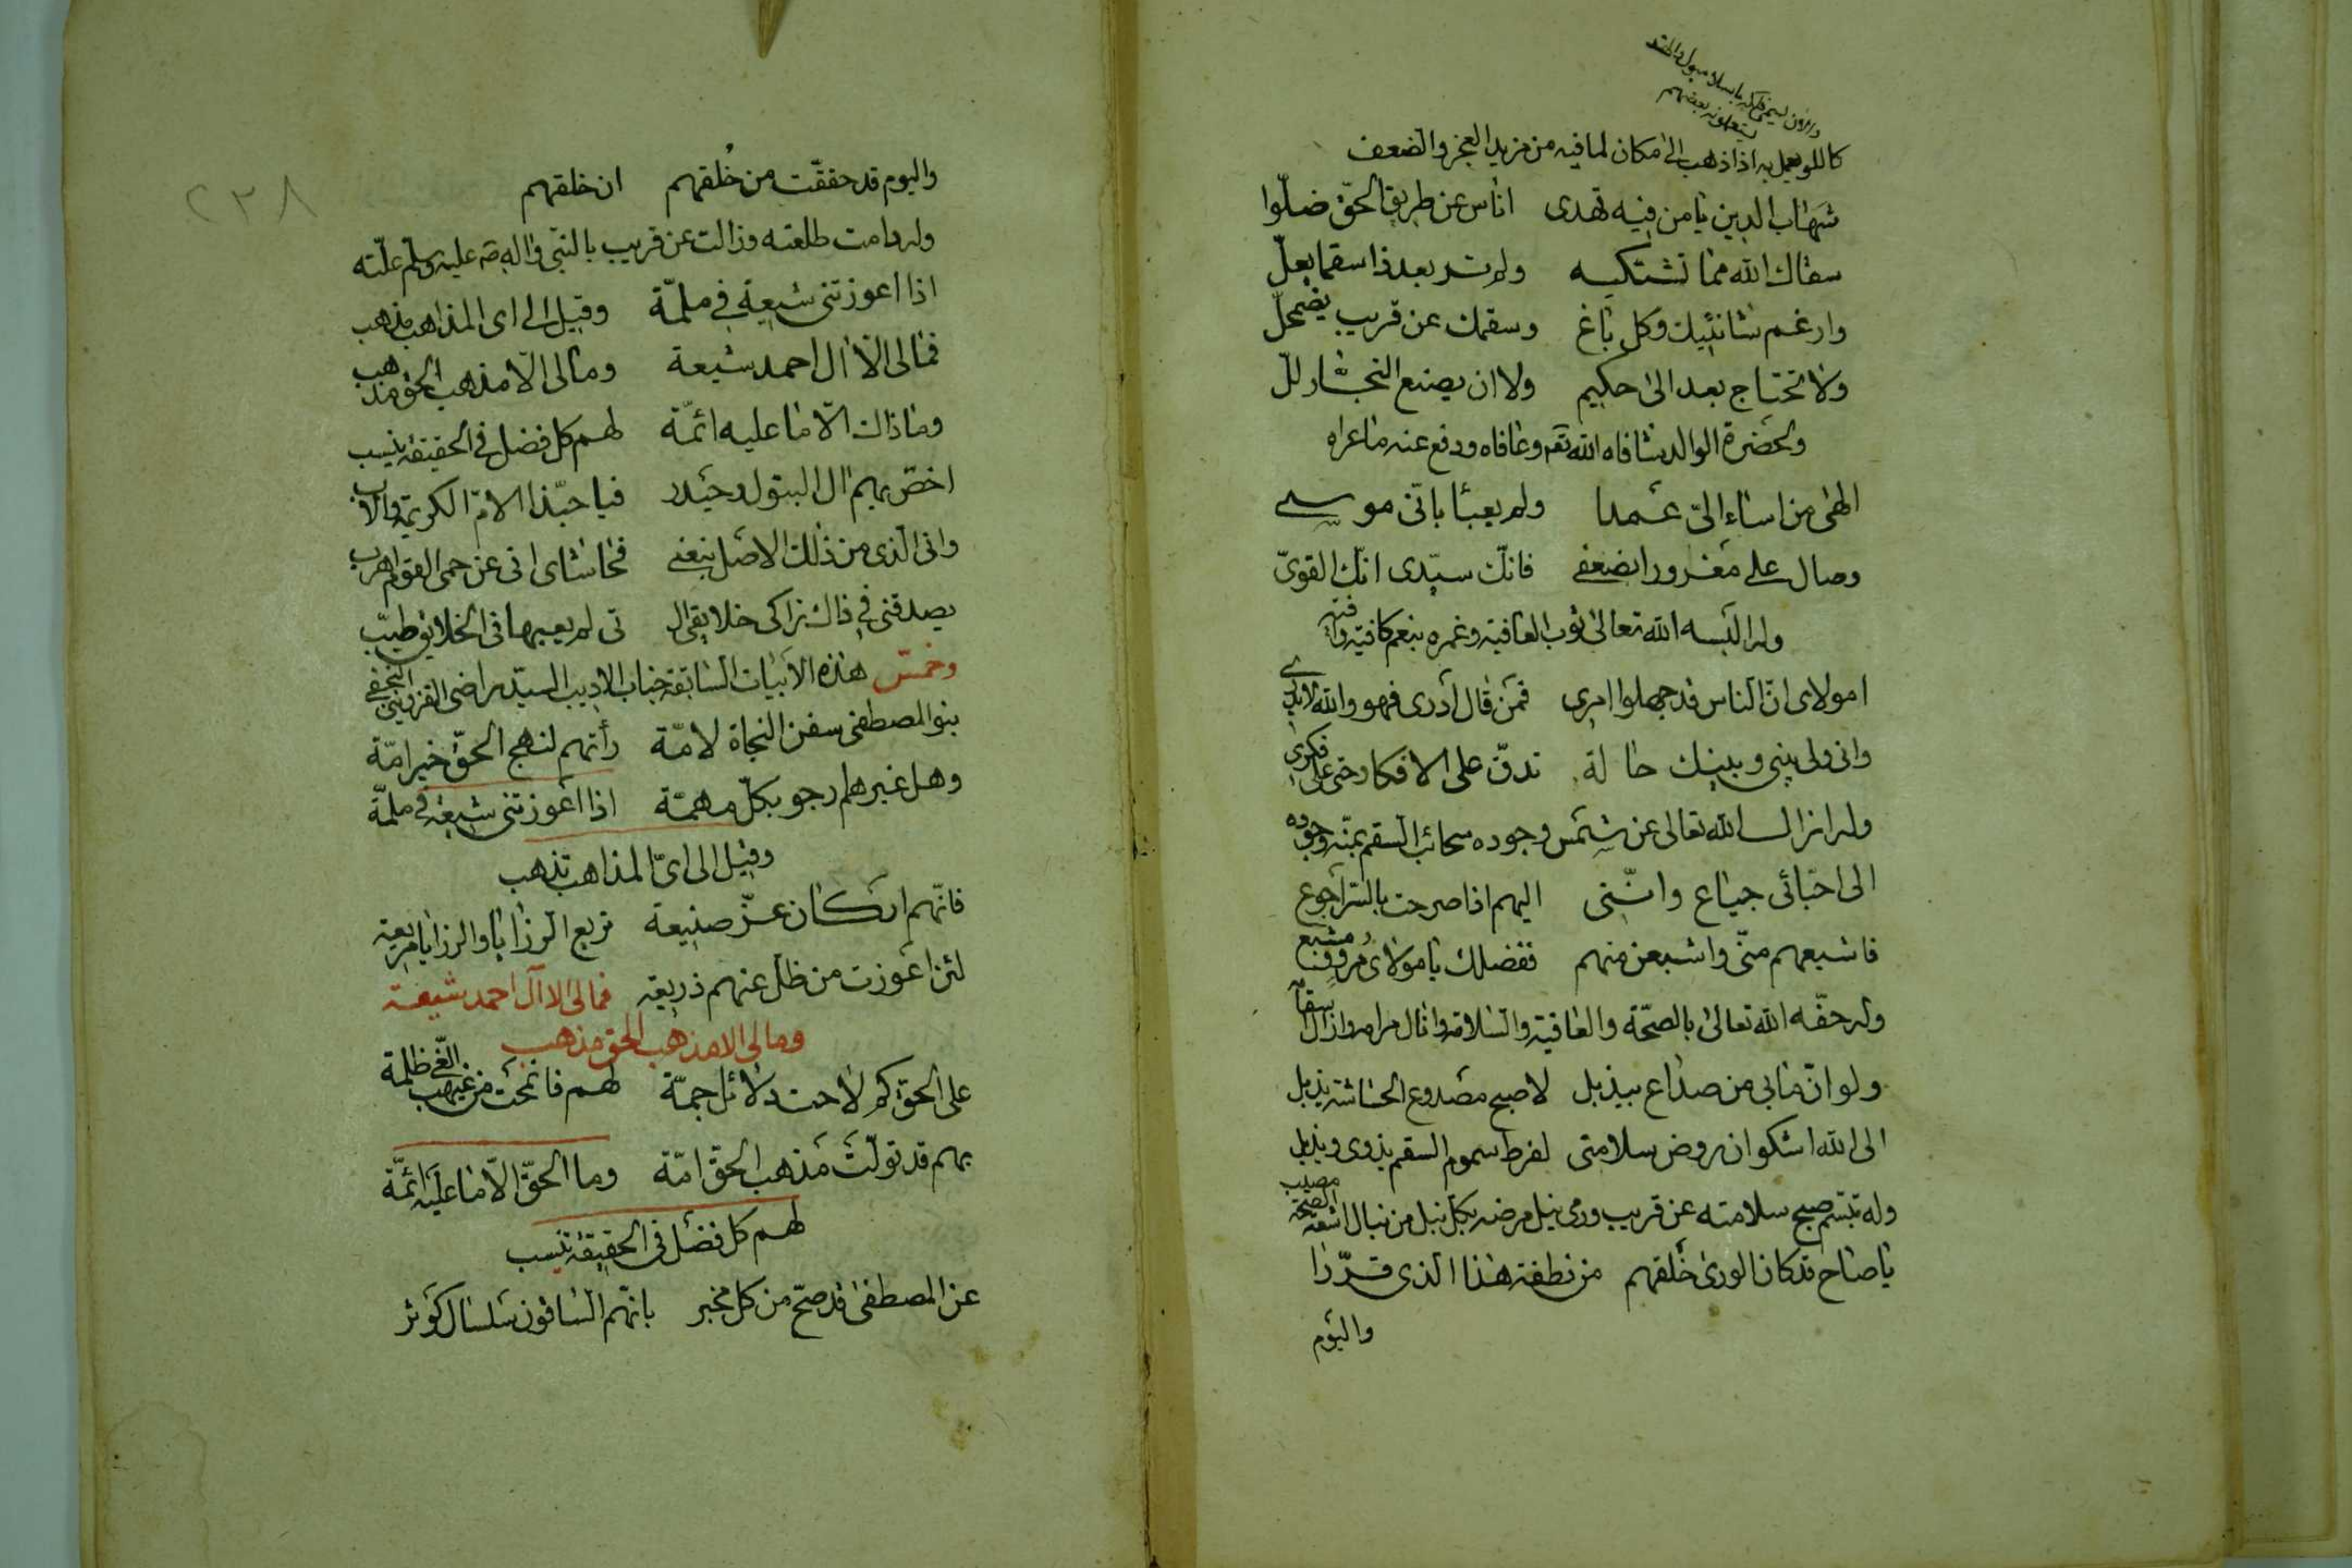 كاللو يعمل به اذا ذهب الى مكان لما فيه من مزيد العجز والضعف
شهاب الدين يا من فيه تهدى اناس عن طريق الحق ضلّوا
سقاك الله مما تشتكيه ولم تر بعد ذا سقما يعلّ
وارغم شانئيك وكل باغ وسقمك عن قريب يضمحلّ
ولا تحتاج بعد الى حكيم ولا ان يصنع النجار للّ
ولحضرة الوالد شافاه الله تعه وعافاه ودفع عنه ما عراه
الهى من اساء الىّ عمدا ولم يعبأ بانّى موسى
وصال على مغرورا بضعفى فانك سيّدى انك القوىّ
وله البسه الله تعالى ثوب العافية وغمره بنعم كافية وافية
امولاى انّ الناس قد جهلوا امرى فمن قال أدرى فهو والله لا يدرى
وانى ولى بينى وبينك حالة تدقّ على الافكار حتى على فكرى
وله ازال الله تعالى عن شمس وجوده سحائب السقم بمنّه وجوده
الى احبّائى جياع وانّنى اليهم اذا صرحت بالسرّ أجوع
فاشبعهم منّى واشبعن منهم ففضلك يا مولاى مرو ومشبع
وله حفّه الله تعالى بالصحّة والعافية والسلامة وانال مرامه وازال سقامه
ولو انّ ما بى من صداع بيذبل لاصبح مصدوع الحشاشة يذبل
الى الله اشكو ان روض سلامتى لفرط سموم السقم يذوى ويذبل
وله تبسّم صبح سلامته عن قريب ورمى نبل مرضه بكل نبل من نبال اشعة الصحة مصيب
يا صاح قد كان الورى خُلقهم من نطفة هذا الذى قرّرا
واليوم
واليوم قد حققّت من خُلقهم ان خلقهم
وله دامت طلعته وزالت عن قريب بالنبى واله صه عليه وسلم علّته
اذا اعوزتنى شيعة فى ملمّة وقيل الى اى المذاهب تذهب
فمالى الّا ال احمد شيعة ومالى الّا مذهب الحق مذهب
وما ذاك الّا ما عليه ائمّة لهم كل فضل فى الحقيقة ينسب
اخصّ بهم ال البتول وحيدر فيا حبّذا الامّ الكريمة والاب
وانى الذى من ذلك الاصل نبعتى فحاشاى انى عن حمى القوم اهرب
يصدقنى فى ذاك زاكى خلايقى ال تى لم يعبها فى الخلايق طيّب
وخمّس هذه الابيات السابقة جناب الاديب السيّد راضى القزوينى النجفى
بنو المصطفى سفن النجاة لامّة رأتهم لنهج الحقّ خير امّة
وهل غيرهم ارجو بكلّ مهمّة اذا اعوزتنى شيعة فى ملمّة
وقيل الى اىّ المذاهب تذهب
فانّهم اركان عزّ صنيعة تريع الرزايا والرزايا مريعة
لئن اعوزت من ظلّ عنهم ذريعة فمالى الا آل احمد شيعة
ومالى الا مذهب الحق مذهب
على الحق كم لاحت دلائل جمّة لهم فانمحت من غيهب الغّى ظلمة
بهم قد تولّت مذهب الحقّ امّة وما الحقّ الّا ما عليه ائمّة
لهم كل فضل فى الحقيقة ينسب
عن المصطفى قد صحّ من كل مخبر بانّهم الساقون سلسال كوثر
٢٣٨